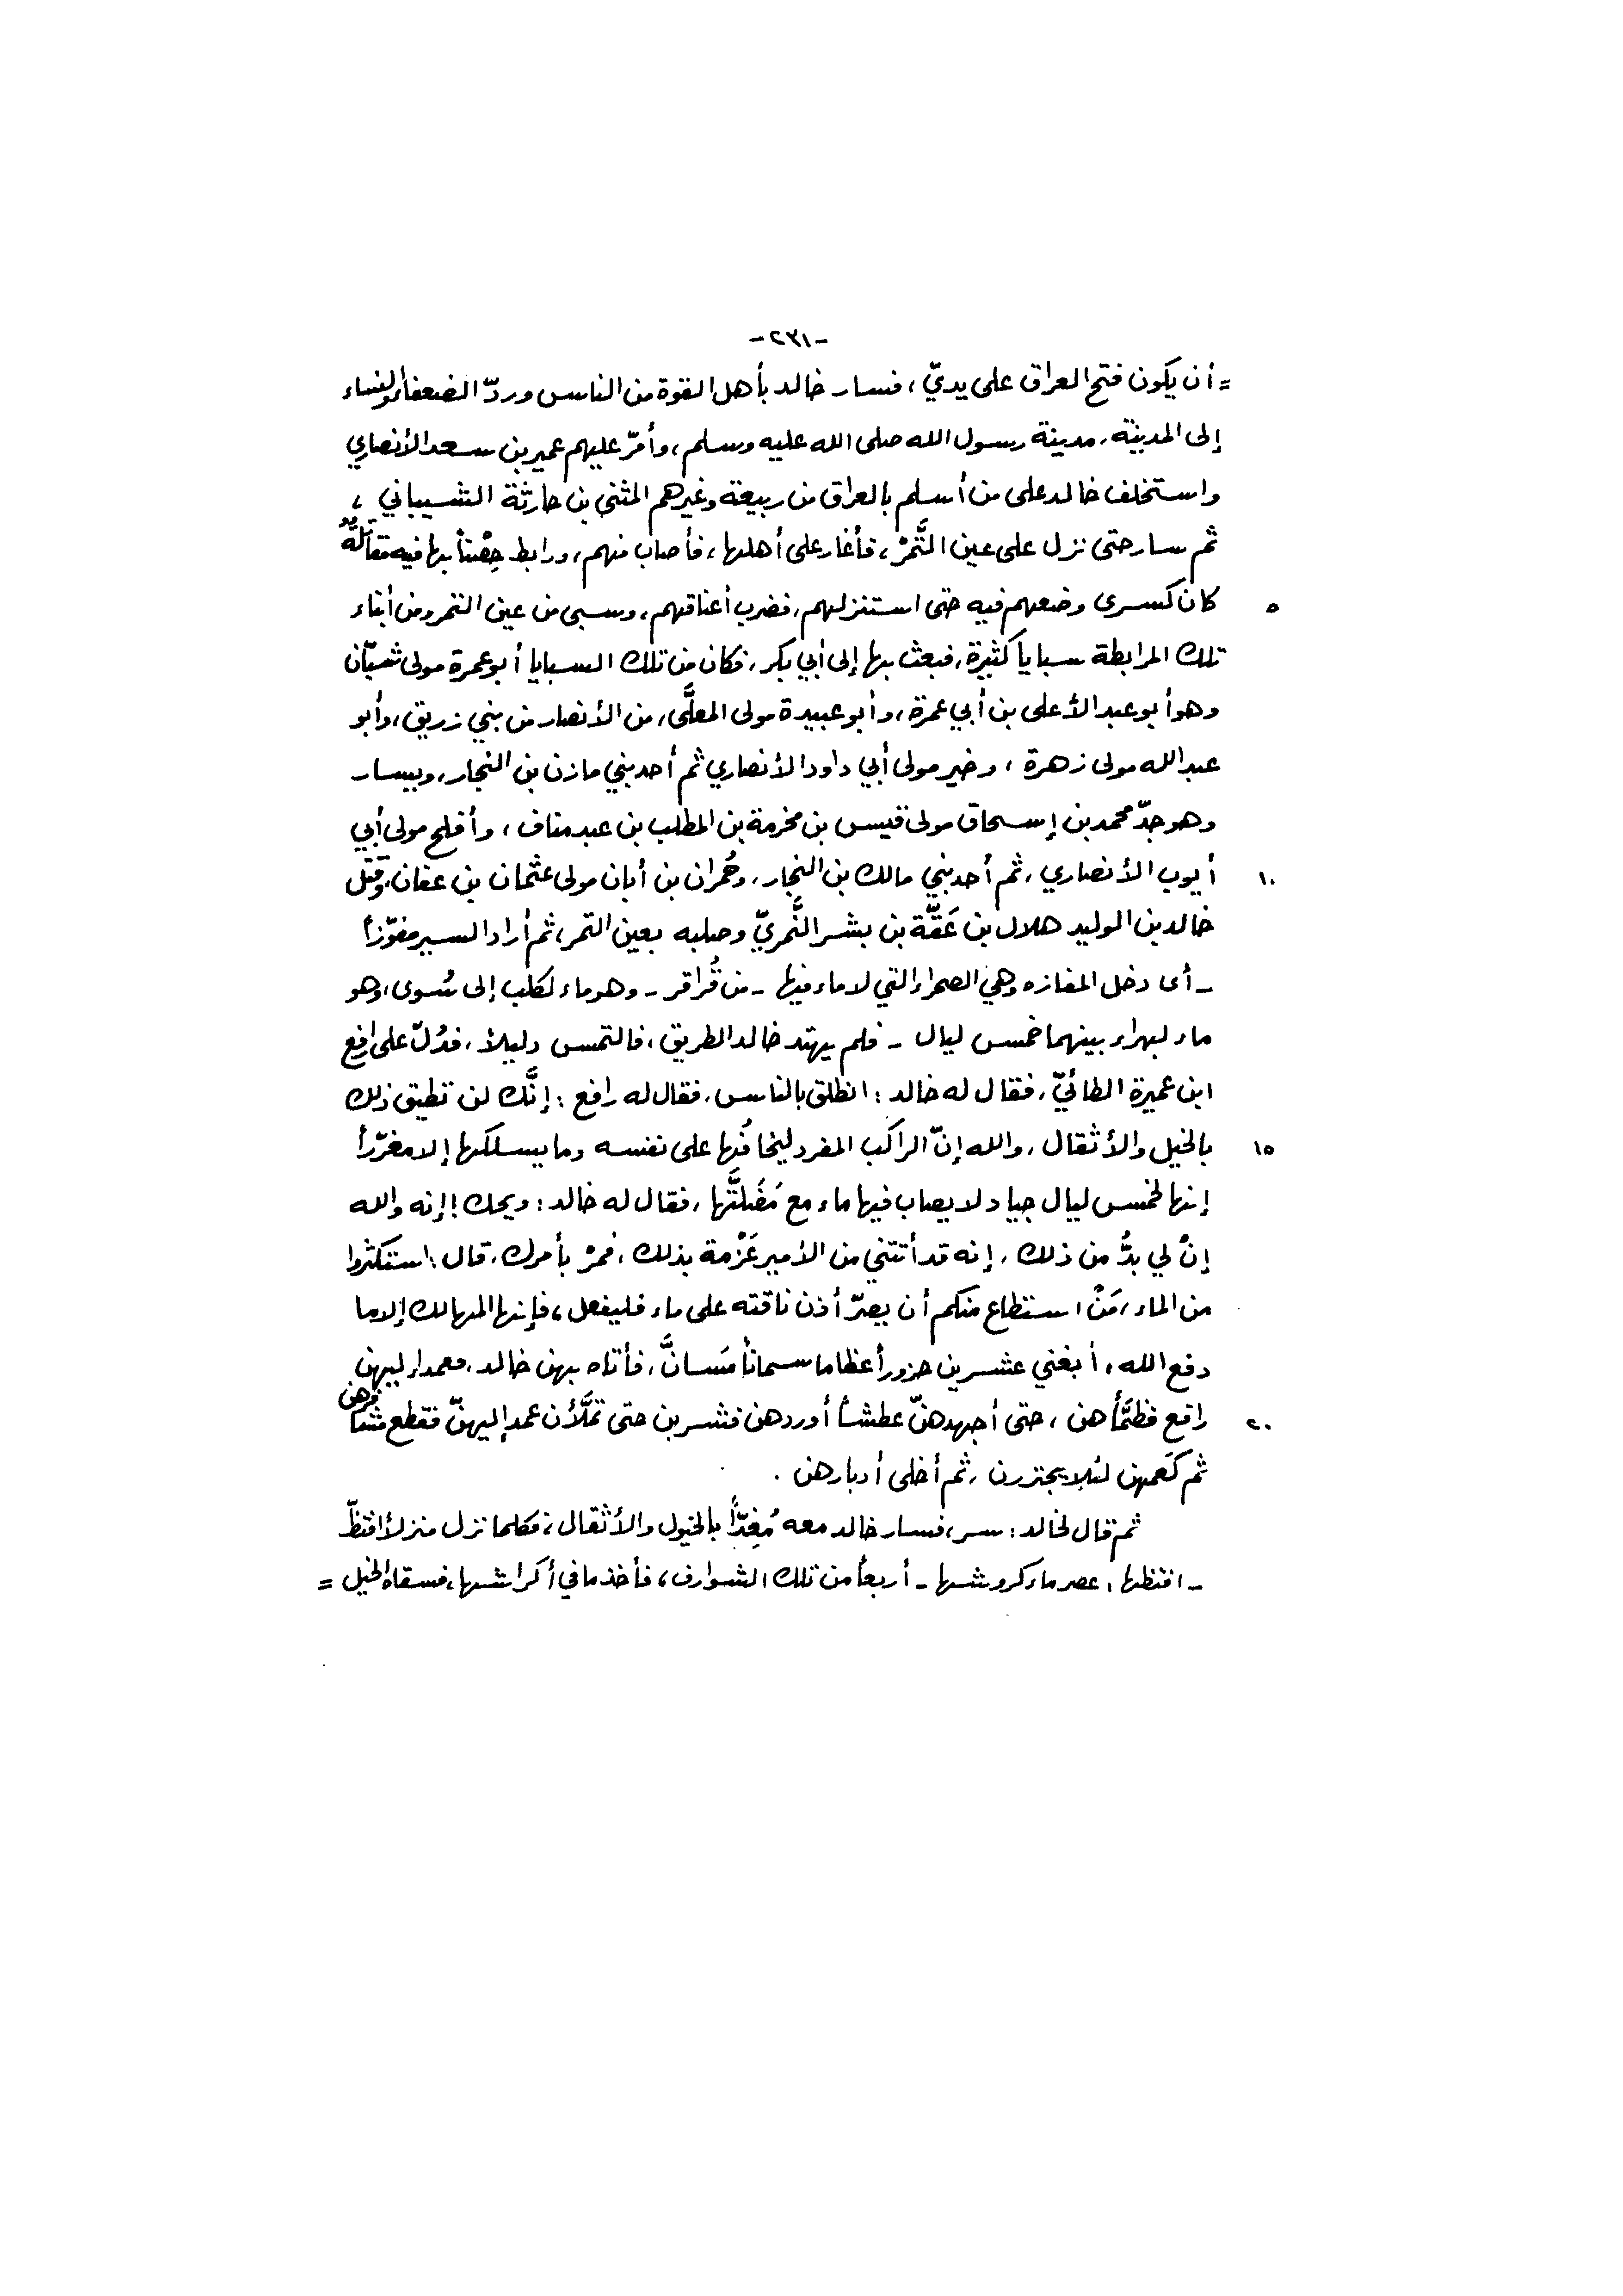 -٢٣١-
= أن يكون فتح العراق على يديّ، فسار خالد بأهل القوة من الناس وردّ الضعفاء والنساء
إلى المدينة، مدينة رسول الله صلى الله عليه وسلم، وأمّر عليهم عمير بن سعد الأنصاري
واستخلف خالد على من أسلم بالعراق من ربيعة وغيرهم المثنى بن حارثة الشيباني،
ثم سار حتى نزل على عين التَّمرْ، فأغار على أهلها، فأصاب منهم، ورابط حِصْناً بها فيه مقاتلةٌ
٥ كان كسرى وضعهم فيه حتى استنزلهم، فضرب أعناقهم، وسبى من عين التمر ومن أبناء
تلك المرابطة سبايا كثيرة، فبعث بها إلى أبي بكر، فكان من تلك السبايا أبو عمرة مولى شبّان
وهو أبو عبد الأعلى بن أبي عمرة، وأبو عبيدة مولى المعلَّى، من الأنصار من بني زريق، وأبو
عبد الله مولى زهرة، وخير مولى أبي داود الأنصاري ثم أحد بني مازن بن النجار، ويسار
وهو جدّ محمد بن إسحاق مولى قيس بن مخرمة بن المطلب بن عبد مناف، وأفلح مولى أبي
١٠ أيوب الأنصاري، ثم أحد بني مالك بن النجار، وحُمران بن أبان مولى عثمان بن عفان، وقتل
خالد بن الوليد هلال بن عَقَّة بن بشر النَّمريّ وصلبه بعين التمر، ثم أراد السير مفوّزاً
- أى دخل المفازه وهي الصحراء التي لا ماء فيها - من قُراقر - وهو ماء لكلب إلى سُوى، وهو
ماء لبهراء بينهما خمس ليال - فلم يهتد خالد الطريق، فالتمس دليلاً، فدُلّ على رافع
ابن عميرة الطائيّ، فقال له خالد: انطلق بالناس، فقال له رافع: إنَّك لن تطيق ذلك
١٥ بالخيل والأثقال، والله إنّ الراكب المفرد ليخافُها على نفسه وما يسلكها إلا مغرّراً
إنها لخمس ليال جياد لا يصاب فيها ماء مع مَضَلَّتها، فقال له خالد: ويحك! إنه والله
إنْ لي بدُّ من ذلك، إنه قد أتتني من الأمير عَزْمة بذلك، فمرْ بأمرك، قال: استكثروا
من الماء، مَنْ استطاع منكم أن يصرّ أذن ناقته على ماء فليفعل، فإنها المهالك إلا ما
دفع الله، أبغني عشرين جزوراً عظاما سماناً مَسانَّ، فأتاه بهن خالد، فعمد إليهن
٢٠ رافع فظمَّأهن، حتى أجهدهنّ عطشاً أوردهن فشربن حتى تملَّأن عمد إليهنّ فقطع مشافرهن
ثم كَعمهن لئلا يجتررن، ثم أخلى أدبارهن.
ثم قال لخالد: سر، فسار خالد معه مُغِذّاً بالخيول والأثقال، فكلما نزل منزلاً افتظّ
- افتظها: عصر ماء كروشها - أربعاً من تلك الشوارف، فأخذ ما في أكراشها، فسقاه الخيل =